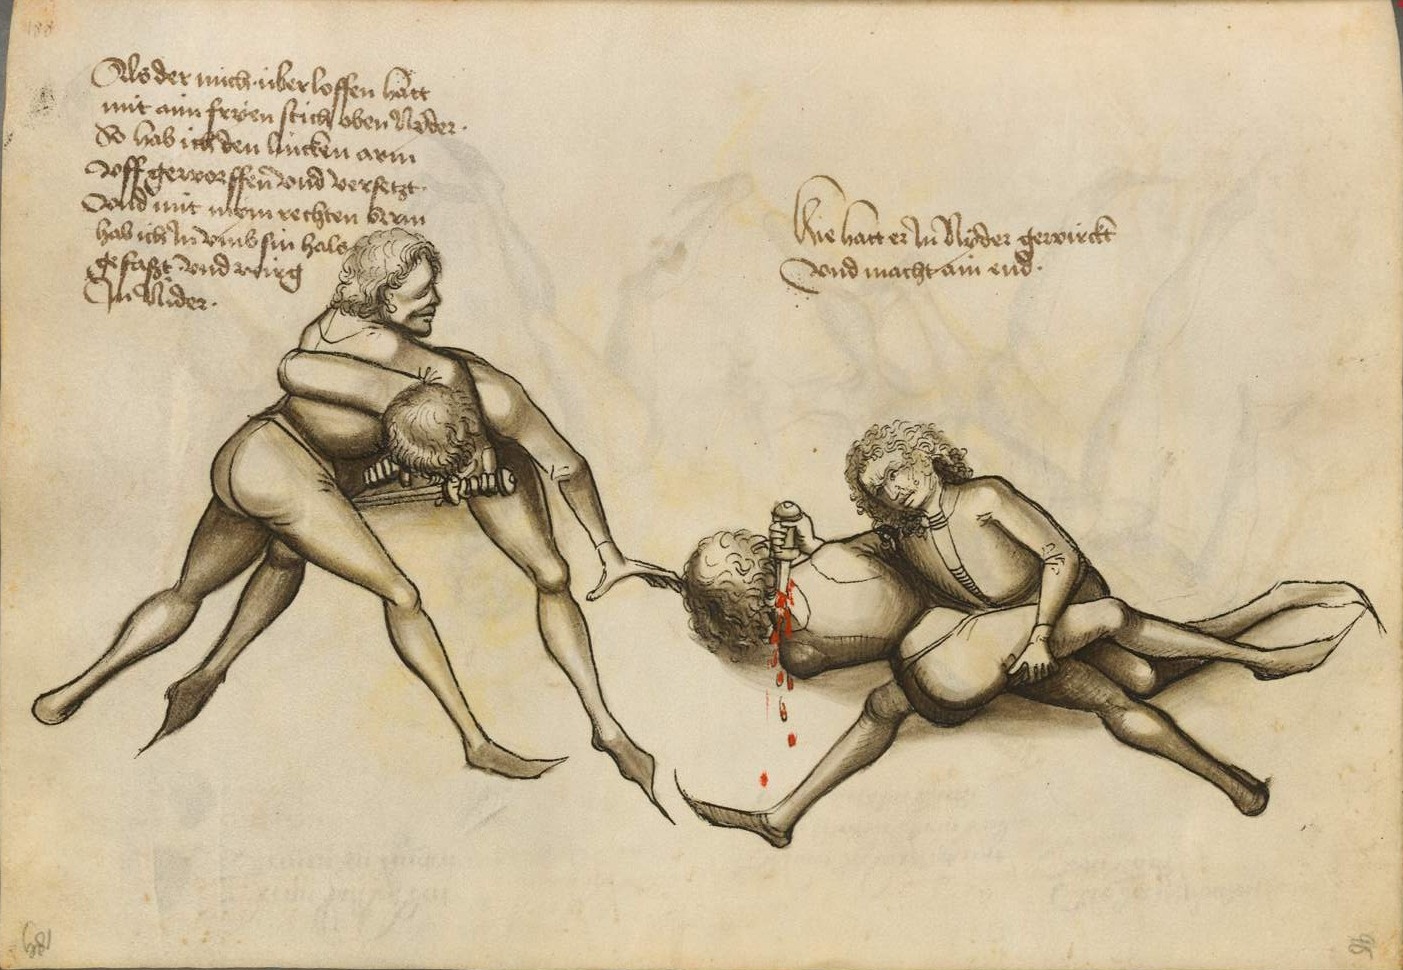 Als der mich überloffen hatt
mit aim fryen stich oben Nyder.
So hab ich den lincken arm
vff geworffen vnd versetzt.
Vnd mit mym rechten arm
hab ich In vmb sin hals
gefaßt vnd wirg
In Nider.
Hie hatt er In Nyder gewirckt
vnd macht ain end.